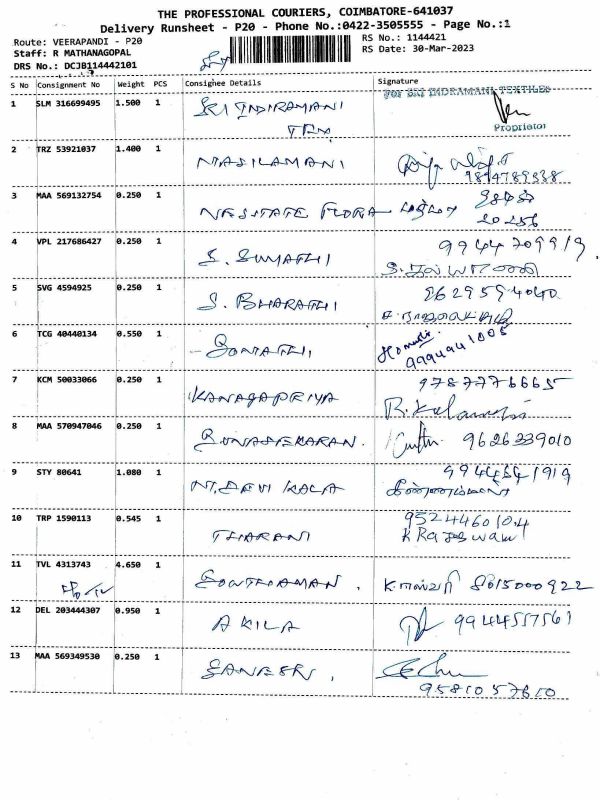 THE PROFESSIONAL COURIERS, COIMBATORE-641037
Delivery Runsheet - P20 - Phone No.:0422-3505555 - Page No.:1
Route: VEERAPANDI - P20
Staff: R MATHANAGOPAL
DRS No.: DCJB114442101
RS No.: 1144421
RS Date: 30-Mar-2023
S No Consignment No Weight PCS Consignee Details Signature
1 SLM 316699495 1.500 1 SRI INDIRAMANI
TEX
For SRI INDRAMANI TEXTILES
Proprietor
2 TRZ 53921037 1.400 1 MASILAMANI
3 MAA 569132754 0.250 1 FLORA
4 VPL 217686427 0.250 1 S. SUMATHI
5 SVG 4594925 0.250 1 S. BHARATHI
9629594040
6 TCG 40440134 0.550 1 GOMATHI
9994941005
7 KCM 50033066 0.250 1 KANAGAPRIYA 9787776665
8 MAA 570947046 0.250 1 GUNASEKARAN. 9626339010
9 STY 80641 1.080 1 N. DEVI KALA
10 TRP 1590113 0.545 1 THARANI 9524460104
K Rajeswari
11 TVL 4313743 4.650 1 GOWTHAMAN. 8015000922
12 DEL 203444307 0.950 1 AKILA 9944557561
13 MAA 569349530 0.250 1 GANESH.
9581057610